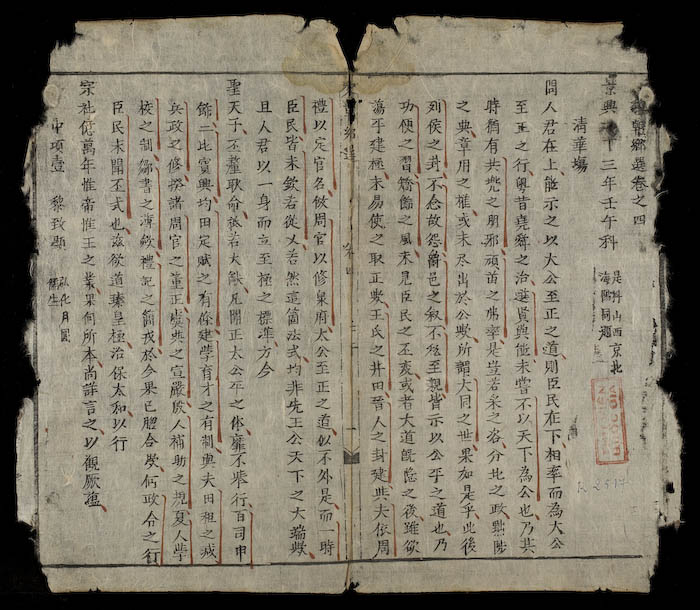 鄉選卷之四
景興十三年壬午科
是科山西京北
海陽同題
清華場
問人君在上能示之以大公至正之道則臣民在下相率而為大公
至正之行粤昔堯舜之治選賢與能未嘗不以天下為公也乃其
時猶有共兜之朋邪頑苗之弗率是豈若采之咨分北之政黜陟
之典章用之猶或未尽出於公歟所謂大同之世果如是乎此後
列侯之封不忘故怨爵邑之叙不及至親皆示以公平之道也乃
功便之習矯餙之風未見臣民之丕变或者大道既隐之後雖欲
蕩平建極未易使之取正歟王氏之井田晉人之封建與夫依周
鄉選
卷四
禮以定官名倣周官以修泉府大公至正之道似不外是而一時
臣民皆未欽若從乂若然這箇法式均非先王公天下之大端歟
且人君以一身而立至極之標準方今
聖天子丕釐耿命祗若大猷凡關正大公平之体靡不舉行百司申
飭二比賓興均田定賦之有條建學育才之有制與夫田租之减
兵政之修揆諸周官之董正虞典之宣嚴殷人補助之規夏人學
校之制鄒書之薄歛禮記之簡戎於今果已脗合歟何政令之行
臣民未聞丕式也茲欲道臻皇極治保太和以衍
宗社億萬年惟帝惟王之業果何所本尚詳言之以觀厥蘊
中項壹 黎致顯
弘化月圓
儒生